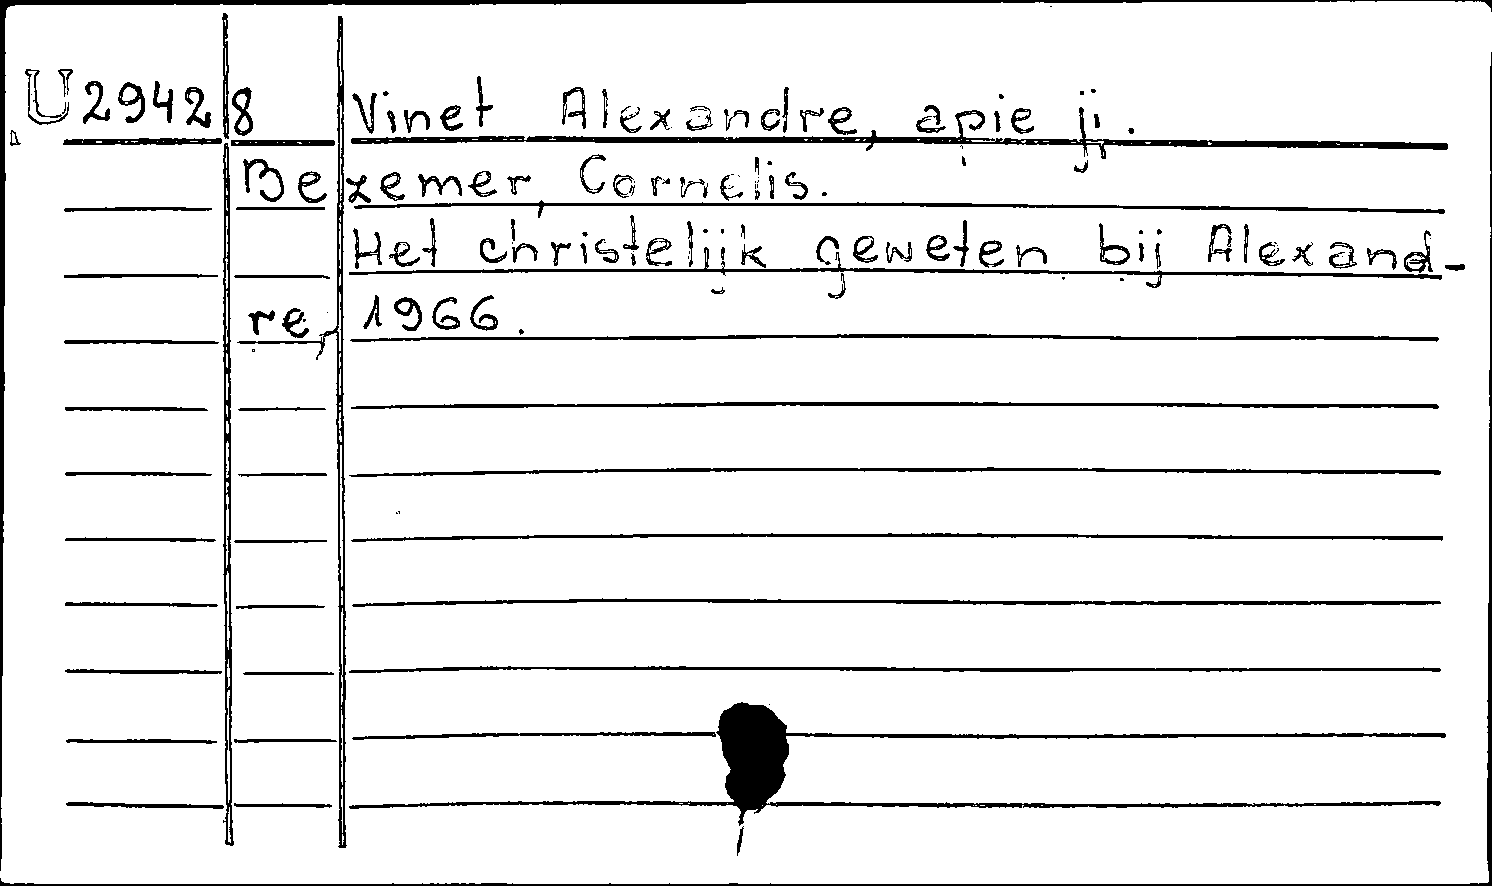 U29428 Vinet Alexandre, apie jį.
Bezemer, Cornelis.
Het christelijk geweten bij Alexand-
re, 1966.